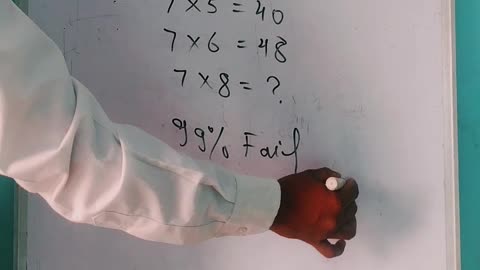 7 × 5 = 40
7 × 6 = 48
7 × 8 = ?
99% Fail